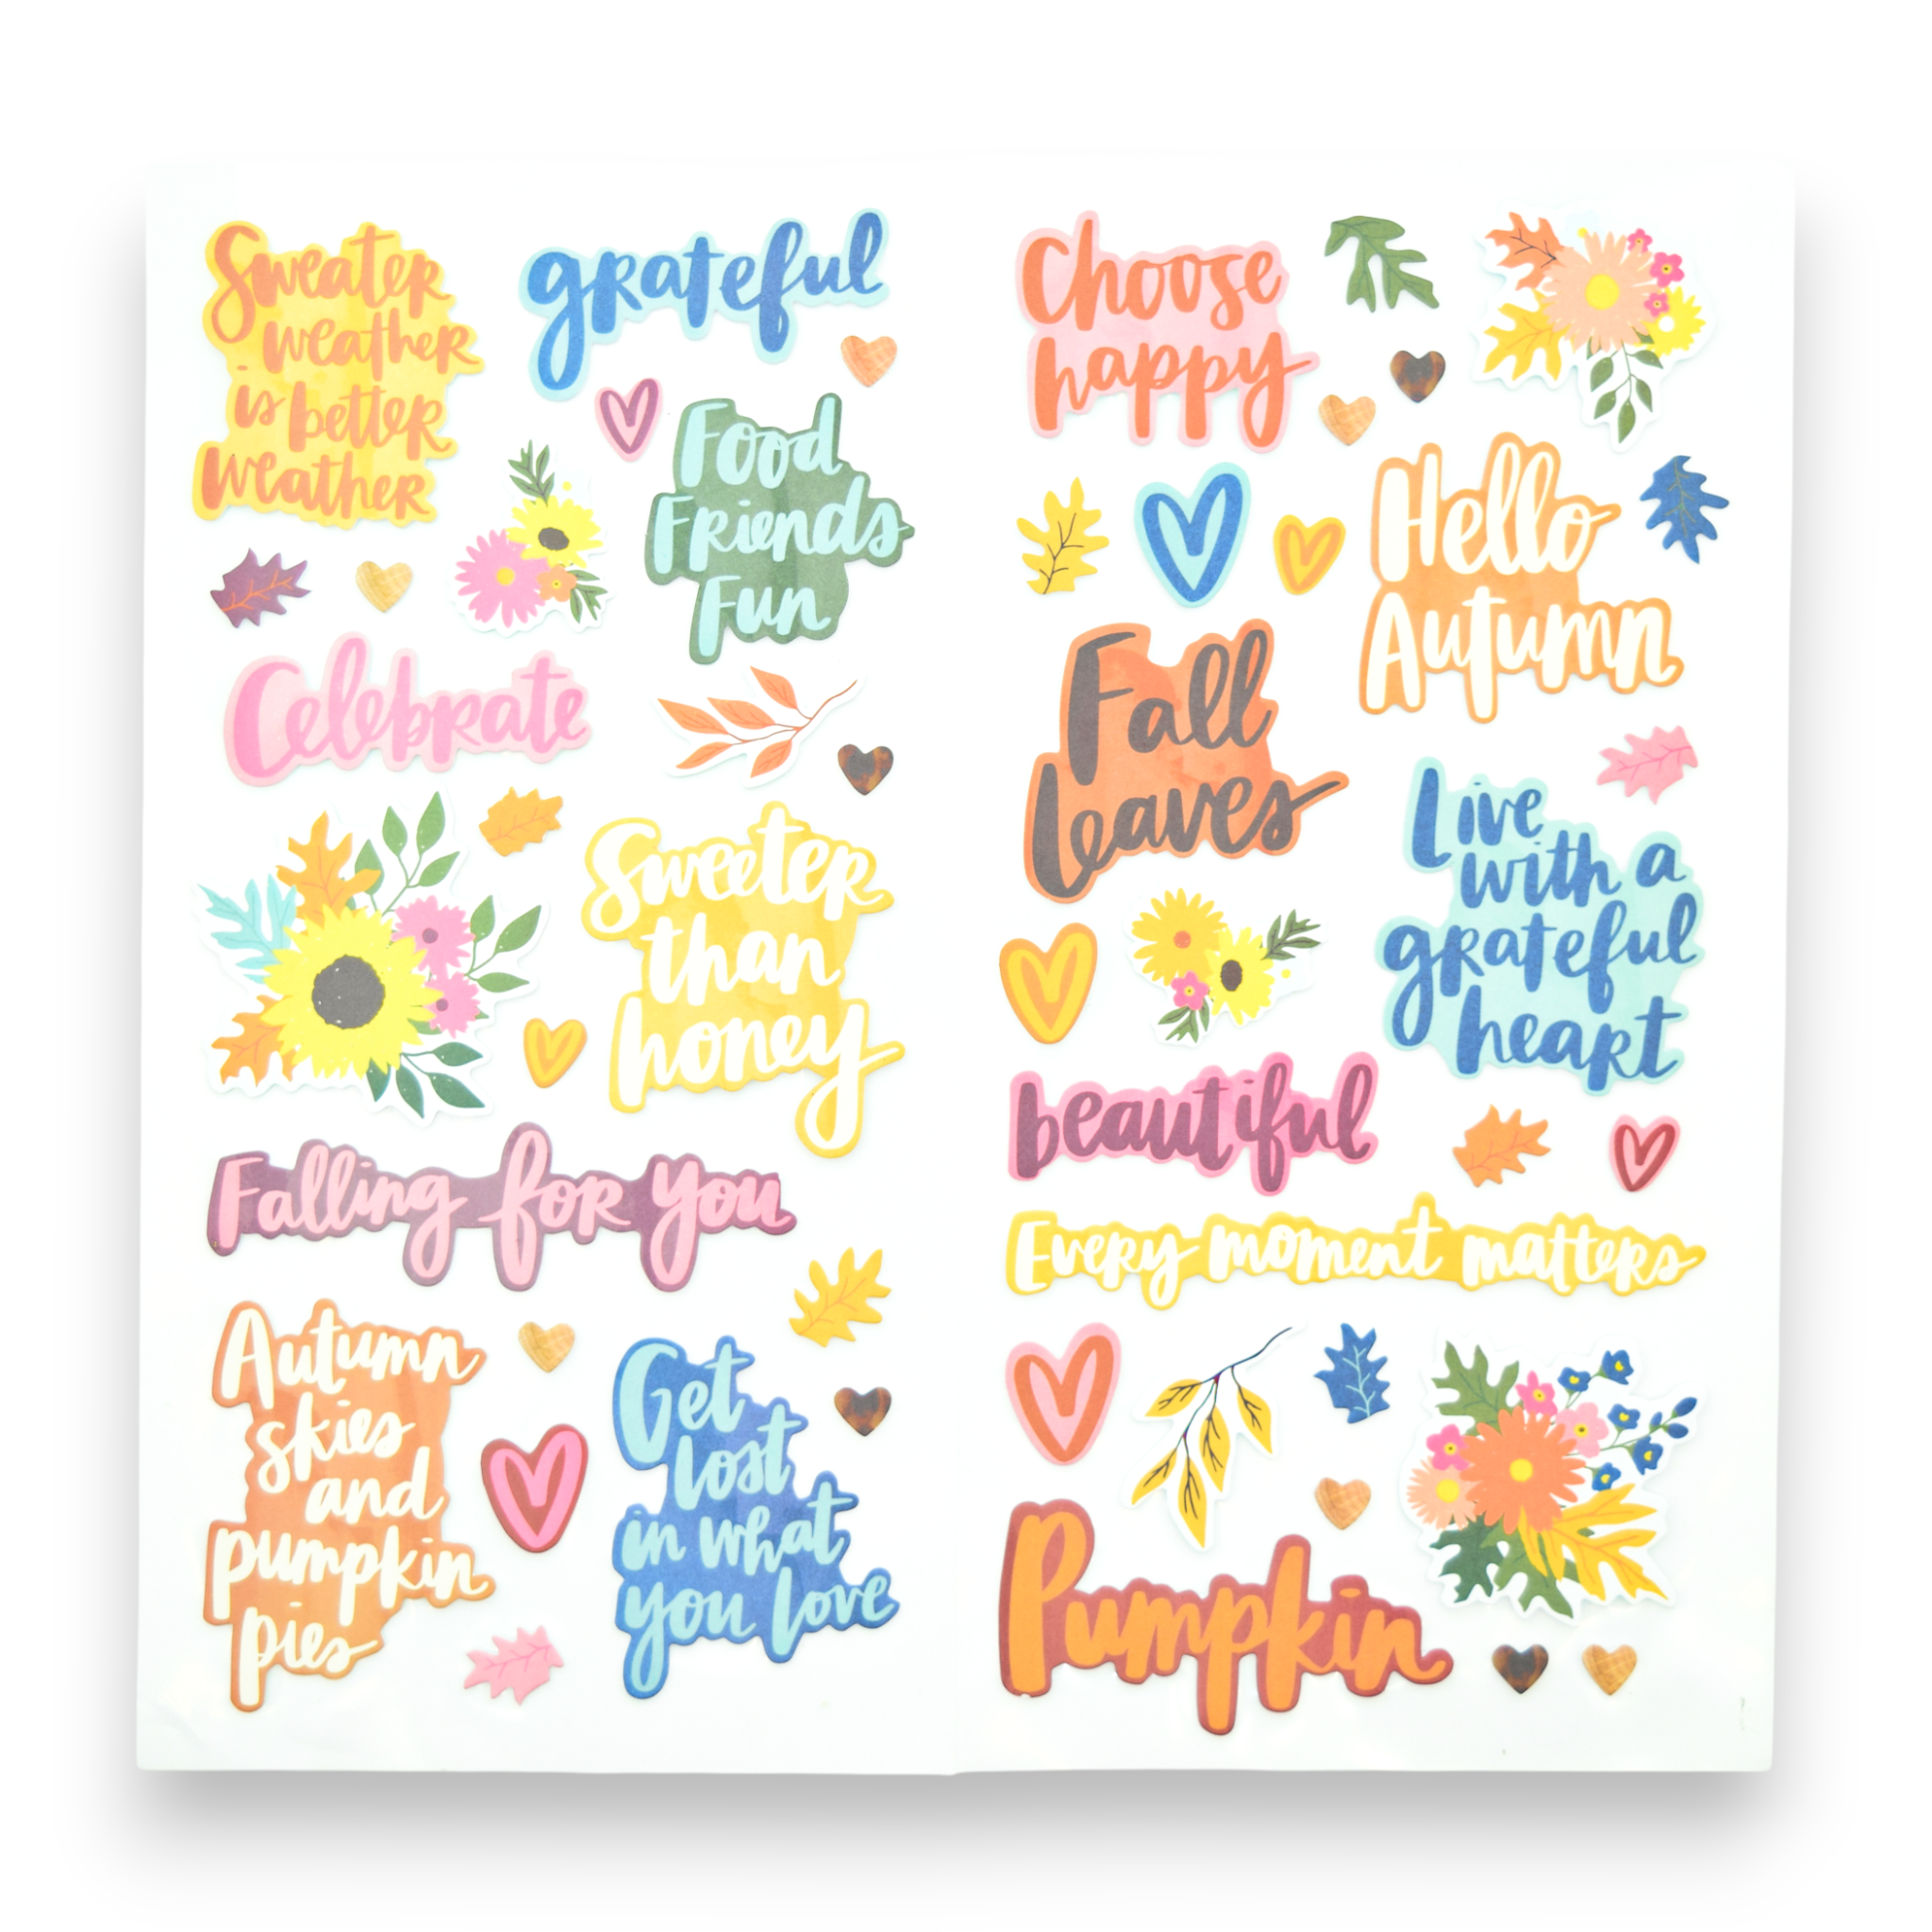 Sweater
weather
is better
weather
grateful
Food
Friends
Fun
Celebrate
Sweeter
than
honey
Falling for you
Autumn
skies
and
pumpkin
pies
Get
lost
in what
you love
Choose
happy
Hello
Autumn
Fall
leaves
Live
with a
grateful
heart
beautiful
Every moment matters
Pumpkin